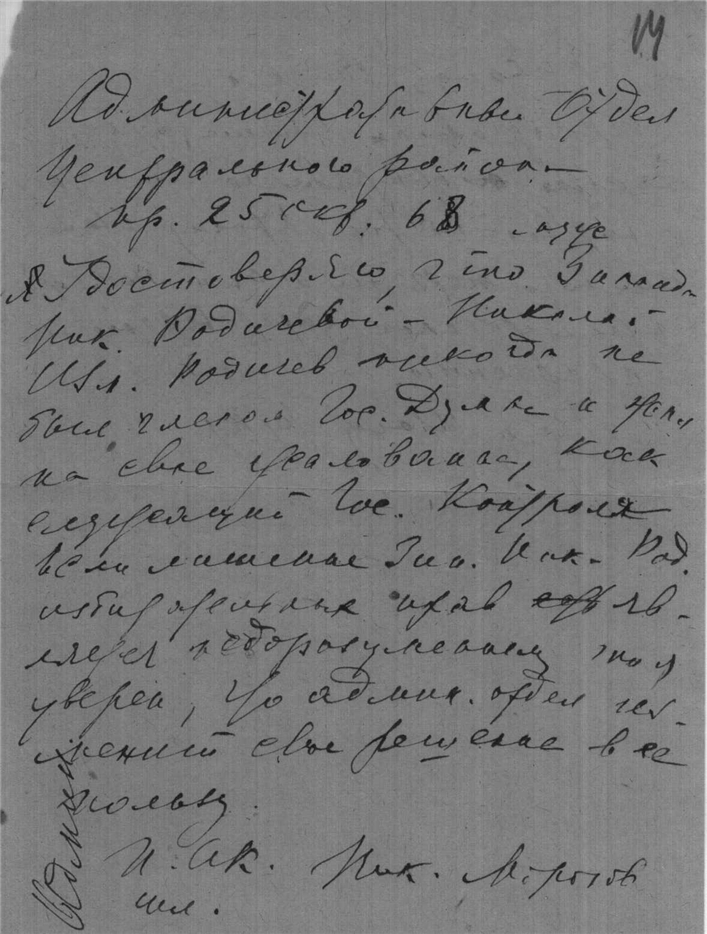 14
Административный Отдел
Центрального района
пр. 25 окт. 68
Я Удостоверяю, что Зинаида
Ник. Родичевой – Николай
Изм. Родичев никогда не
был членом Гос. Думы и жил
на свое жалование, как
служащий Гос. Контроля
лишение Зин. Ник. Род.
избирательных прав яв-
ляется недоразумением и я
уверен, что админ. отдел из-
менит свое решение в ее
пользу.
Ник. Морозов